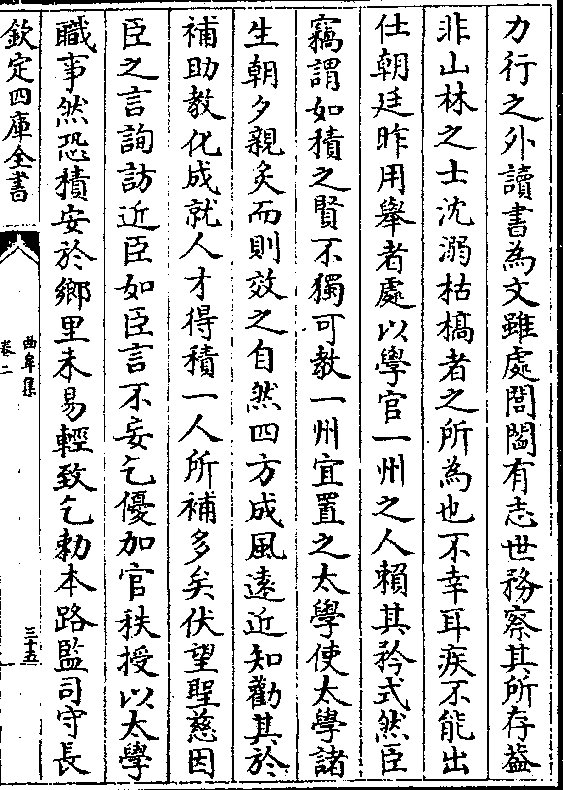 力行之外讀書為文雖處閭閻有志世務察其所存葢
非山林之士沈溺枯槁者之所為也不幸耳疾不能出
仕朝廷昨用舉者處以學官一州之人賴其矜式然臣
竊謂如積之賢不獨可教一州宜置之太學使太學諸
生朝夕親炙而則效之自然四方成風遠近知勸其於
補助教化成就人才得積一人所補多矣伏望聖慈因
臣之言詢訪近臣如臣言不妄乞優加官秩授以太學
職事然恐積安於鄉里未易輕致乞勅本路監司守長
欽定四庫全書
曲阜集
卷二
三十五